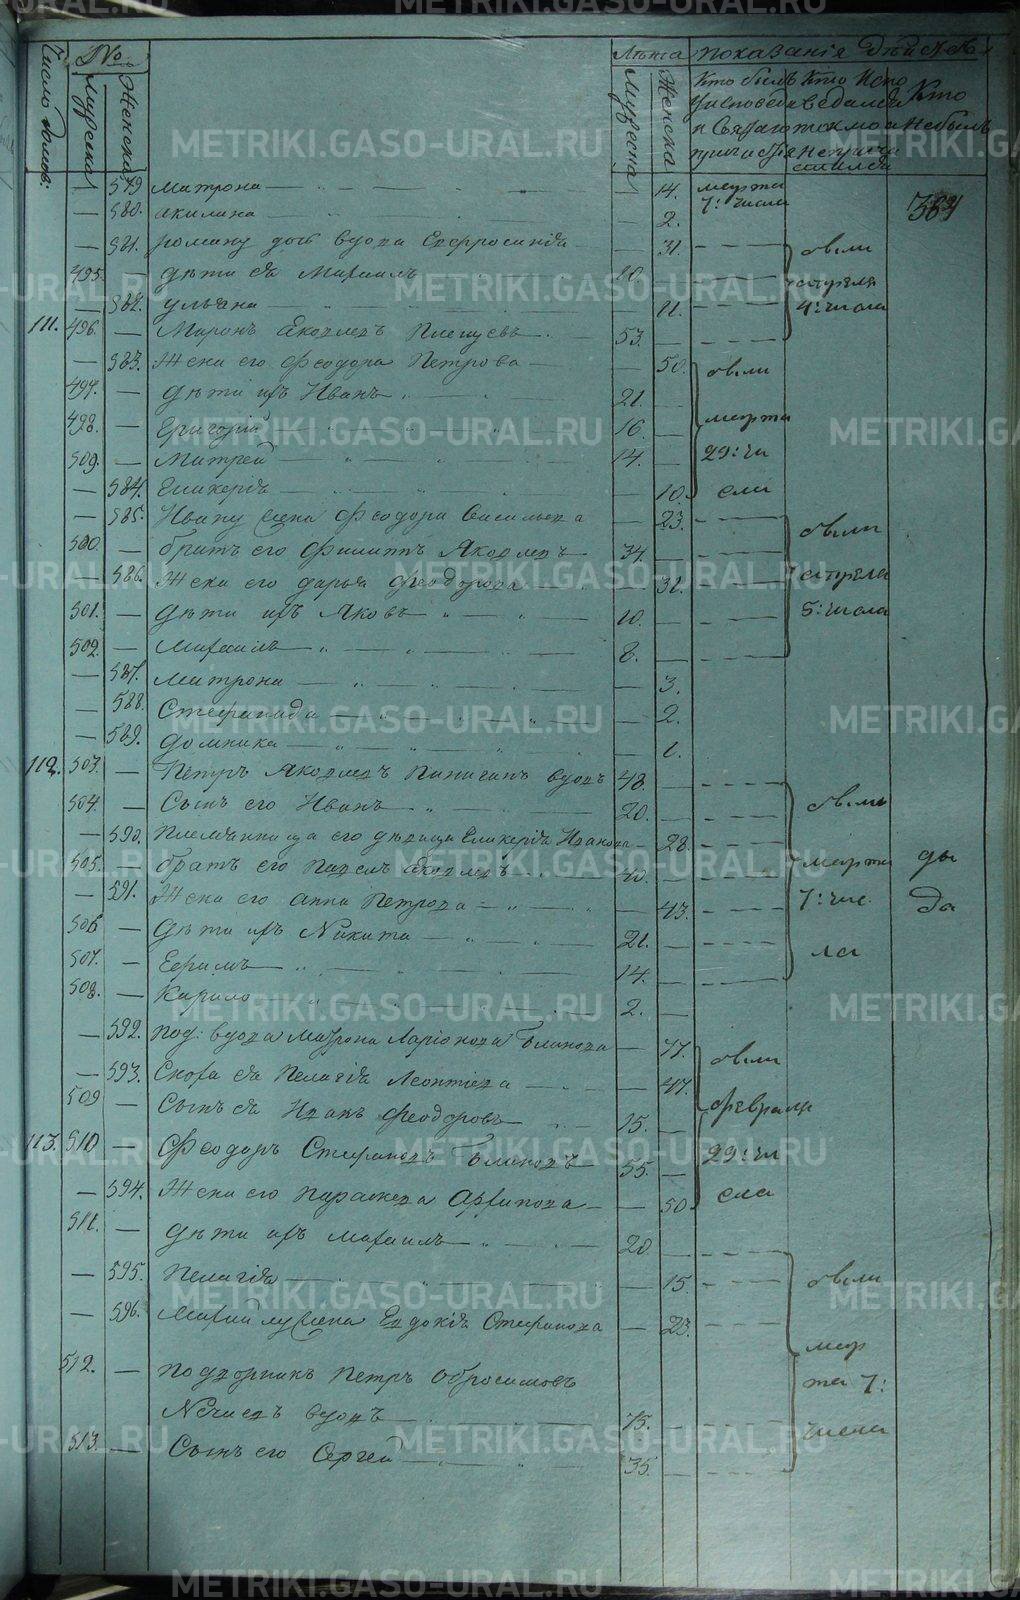 Число домов:
№
Мужеска
Женска
Лѣта
Мужеска
Женска
Показанія дѣйства
Кто былъ у исповеди и Святаго прич
Кто испо ведался токмо а не причи стился
Кто не былъ
384
— 579. Матрона — — 14. марта
— 580. акилина — — 2. 7: числа
— 581. роману вдова Евфросинія — — 31. были
495. — дѣти ея Михаилъ — 10. апреля
— 582. ульяна — — 11. 4: числа
111. 496. — Миронъ Яковлевъ Плешуевъ — 53.
— 583. Жена его Феодора Петрова — — 50. были
497. — дѣти ихъ Иванъ — 21.
498. — Григорій — 16. марта
509. — Митрей — 14. 29: чи
— 584. Гликерія — — 10. сла
— 585. Ивану Жена Феодора Васильева — 23. были
500. — братъ его Филиппъ Яковлевъ — 34.
— 586. Жена его дарья Феодорова — — 31. апреля
501. — дѣти ихъ Яковъ — 10. 5: числа
502. — Михаилъ — 8.
— 587. Матрона — — 3.
— 588. Стефанида — — 2.
— 589. домника — — 1.
112. 503. — Петръ Яковлевъ Пинигинъ вдовъ 48.
504. — Сынъ его Иванъ — 20. были
— 590. Племянница его дѣвица Гликерія Иванова — 28.
505. — братъ его Павелъ Яковлевъ — 40. марта
— 591. Жена его анна Петрова — — 43. 7: чис
506 — дѣти ихъ Никита — 21. ла
507. — Ефимъ — 14.
508. — Кирило — 2.
— 592. под: вдова Матрона Ларіонова Блинова — 77. были
— 593. Сноха ея Пелагія Леонтіева — — 47. февраля
509 — Сынъ ея Иванъ Феодоровъ — 15.
113. 510 — Феодоръ Стефановъ Блиновъ — 55. 29: чи
— 594. Жена его параскева Архипова — — 50 сла
511. — дѣти ихъ михаилъ — 20
— 595. Пелагія — — 15. были
— 596. Жена Евдокія Стефанова — 23.
512. — подворникъ Петръ Обросимовъ мар та 7:
вдовъ — 75. числа
513. — Сынъ его Сергей — 35.
METRIKI.GASO-URAL.RU